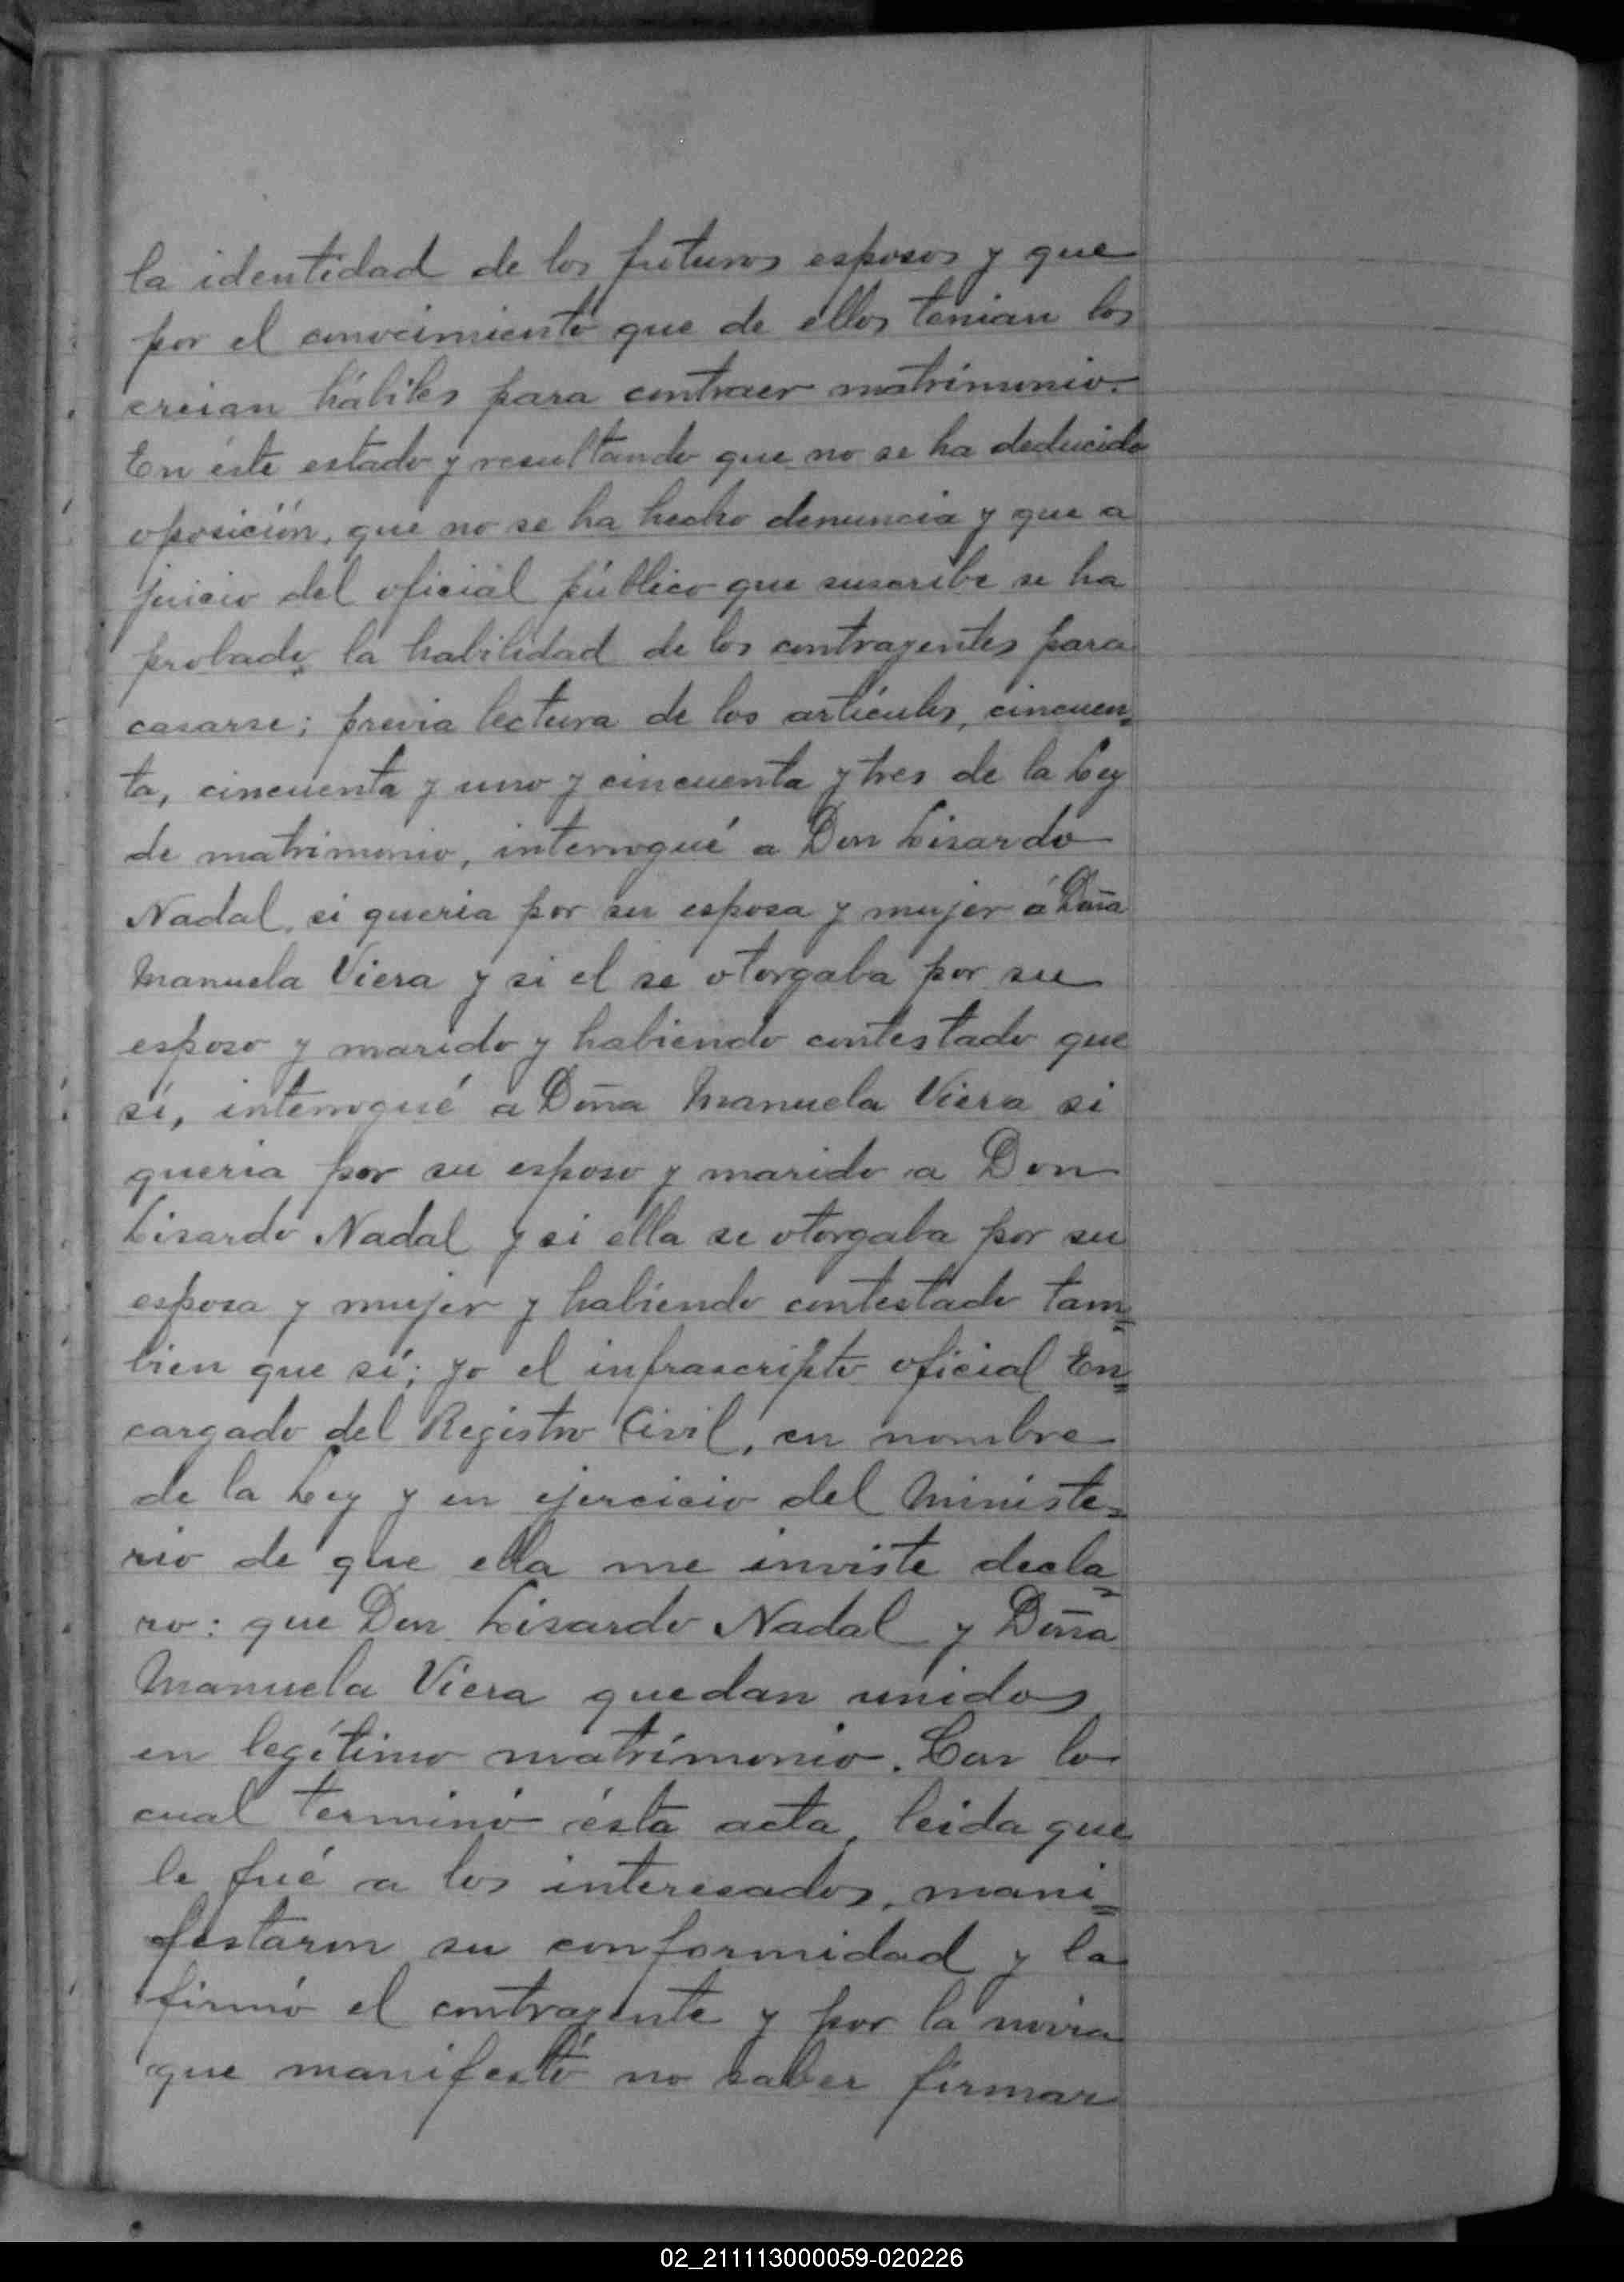 la identidad de los futuros esposos y que
por el conocimiento que de ellos tenian los
creian hábiles para contraer matrimonio.
En éste estado y resultando que no se ha deducido
oposición, que no se ha hecho denuncia y que a
juicio del oficial público que suscribe se ha
probado la habilidad de los contrayentes para
casarse; previa lectura de los artículos, cincuen=
ta, cincuenta y uno y cincuenta y tres de la Ley
de matrimonio, interrogué a Don Lisardo
Nadal, si queria por su esposa y mujer á Doña
Manuela Viera y si el se otorgaba por su
esposo y marido y habiendo contestado que
sí, interrogué a Doña Manuela Viera si
queria por su esposo y marido a Don
Lisardo Nadal y si ella se otorgaba por su
esposa y mujer y habiendo contestado tam=
bien que sí; yo el infrascripto oficial En=
cargado del Registro Civil, en nombre
de la Ley y en ejercicio del Ministe=
rio de que ella me inviste decla=
ro: que Don Lisardo Nadal y Doña
Manuela Viera quedan unidos
en legítimo matrimonio. Con lo
cual terminó ésta acta, leida que
le fué a los interesados, mani=
festaron su conformidad y la
firmó el contrayente y por la novia
que manifestó no saber firmar
02_211113000059-020226